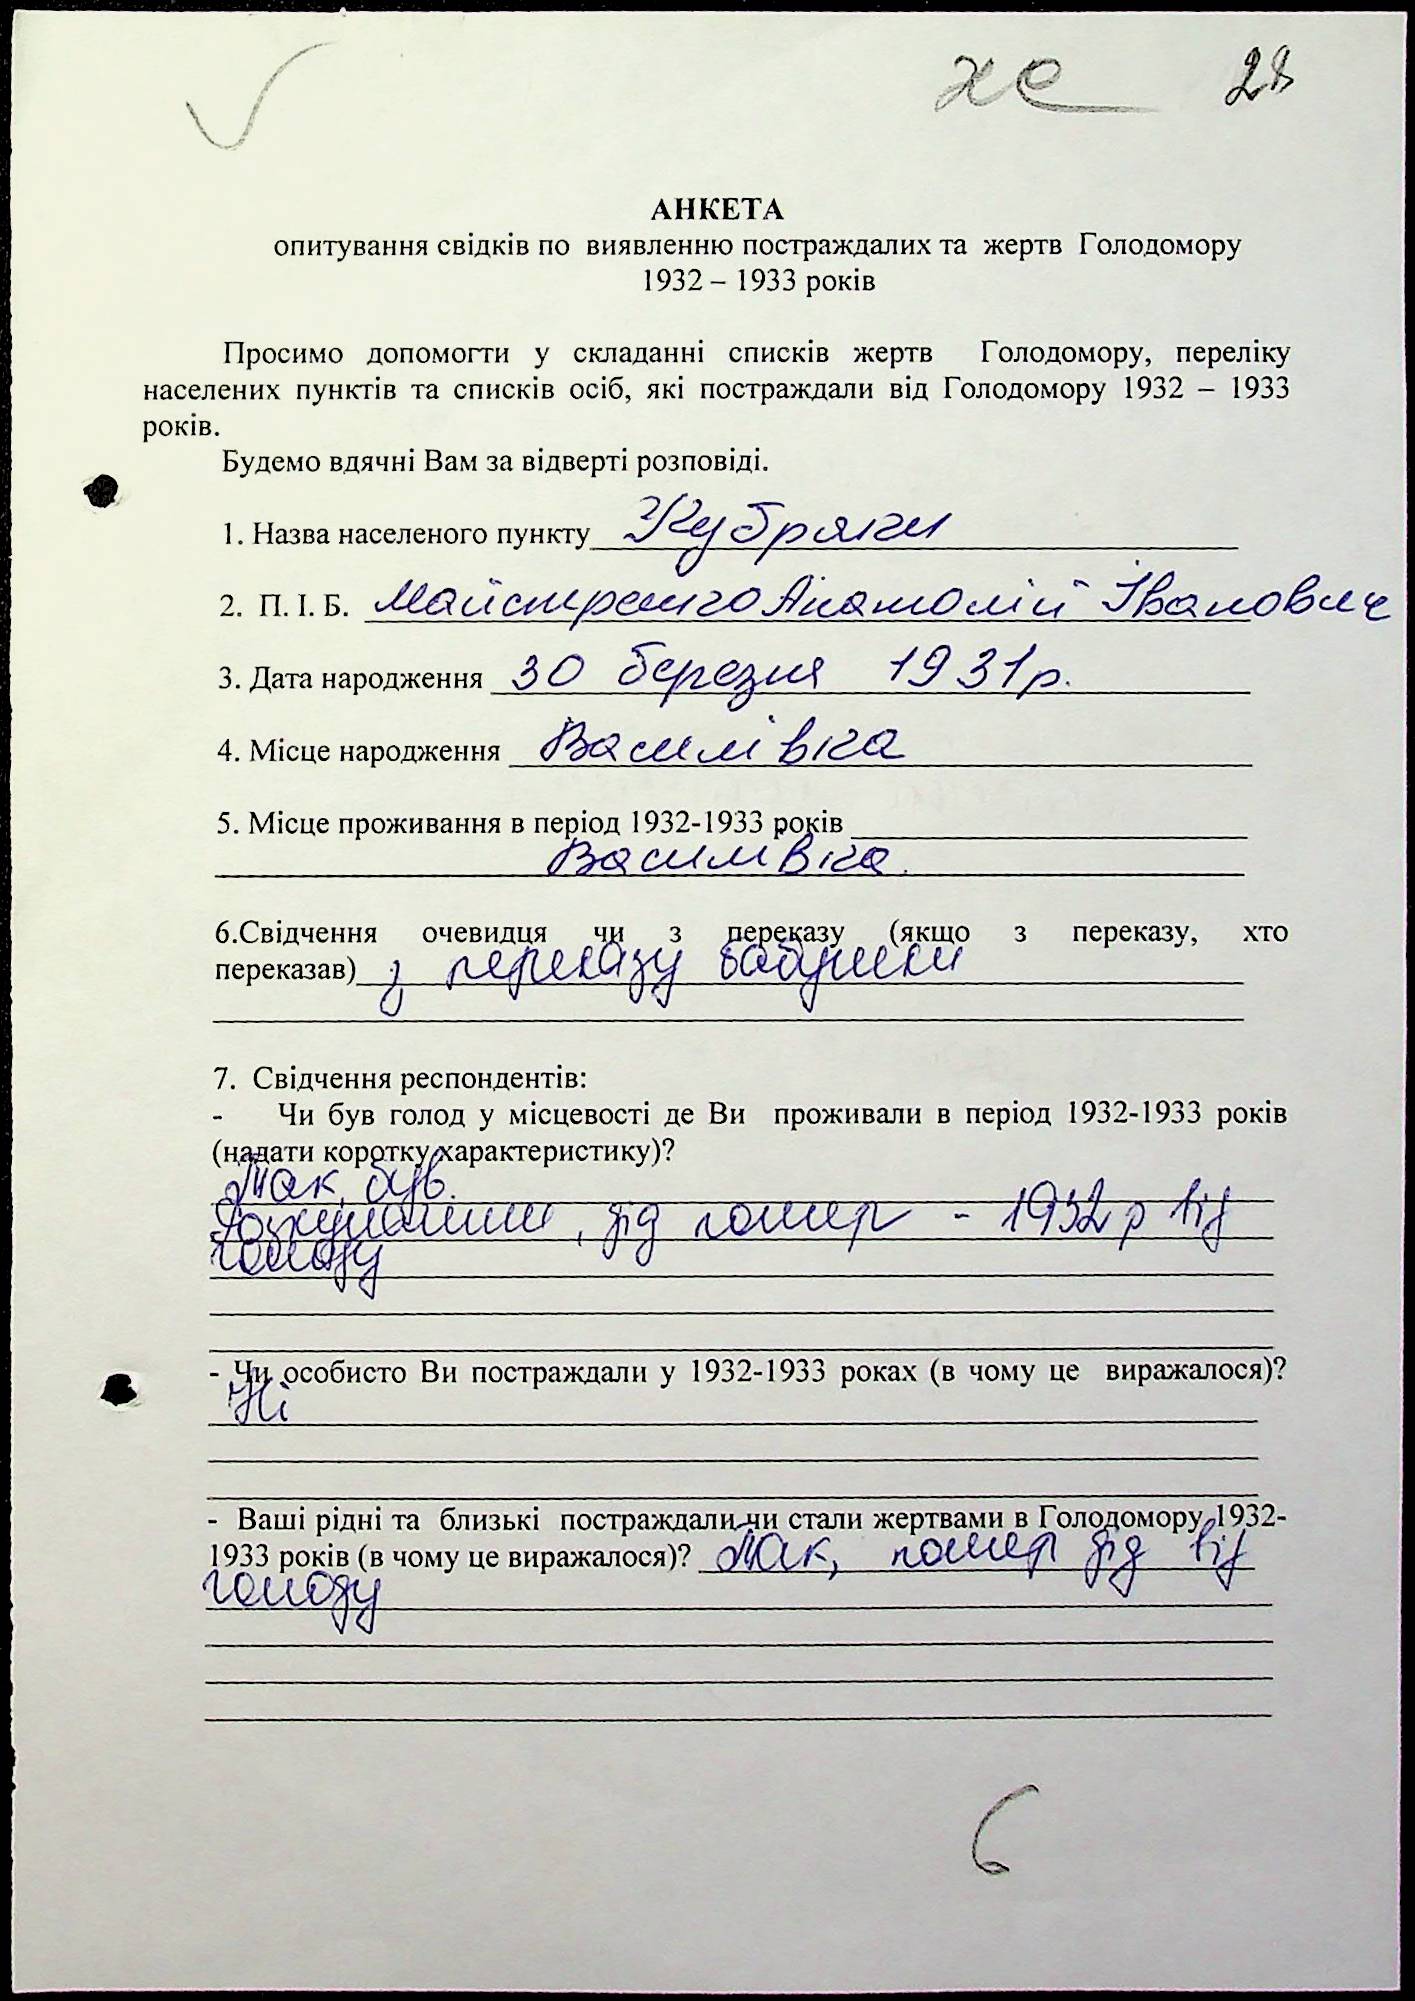 28
АНКЕТА
опитування свідків по виявленню постраждалих та жертв Голодомору
1932 – 1933 років
Просимо допомогти у складанні списків жертв Голодомору, переліку
населених пунктів та списків осіб, які постраждали від Голодомору 1932 – 1933
років.
Будемо вдячні Вам за відверті розповіді.
1. Назва населеного пункту Кубряки
2. П. І. Б. Майстренко Анатолій Іванович
3. Дата народження 30 березня 1931 р.
4. Місце народження Василівка
5. Місце проживання в період 1932-1933 років
Василівка.
6.Свідчення очевидця чи з переказу (якщо з переказу, хто
переказав) з переказу бабушки
7. Свідчення респондентів:
- Чи був голод у місцевості де Ви проживали в період 1932-1933 років
(надати коротку характеристику)?
Так, був.
Розкулачили, дід помер - 1932 р від
голоду
- Чи особисто Ви постраждали у 1932-1933 роках (в чому це виражалося)?
Ні
- Ваші рідні та близькі постраждали чи стали жертвами в Голодомору 1932-
1933 років (в чому це виражалося)? Так, помер дід від
голоду